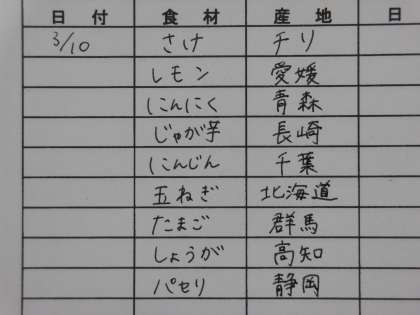 日付 食材 産地 日
3/10 さけ チリ
レモン 愛媛
にんにく 青森
じゃが芋 長崎
にんじん 千葉
玉ねぎ 北海道
たまご 群馬
しょうが 高知
パセリ 静岡